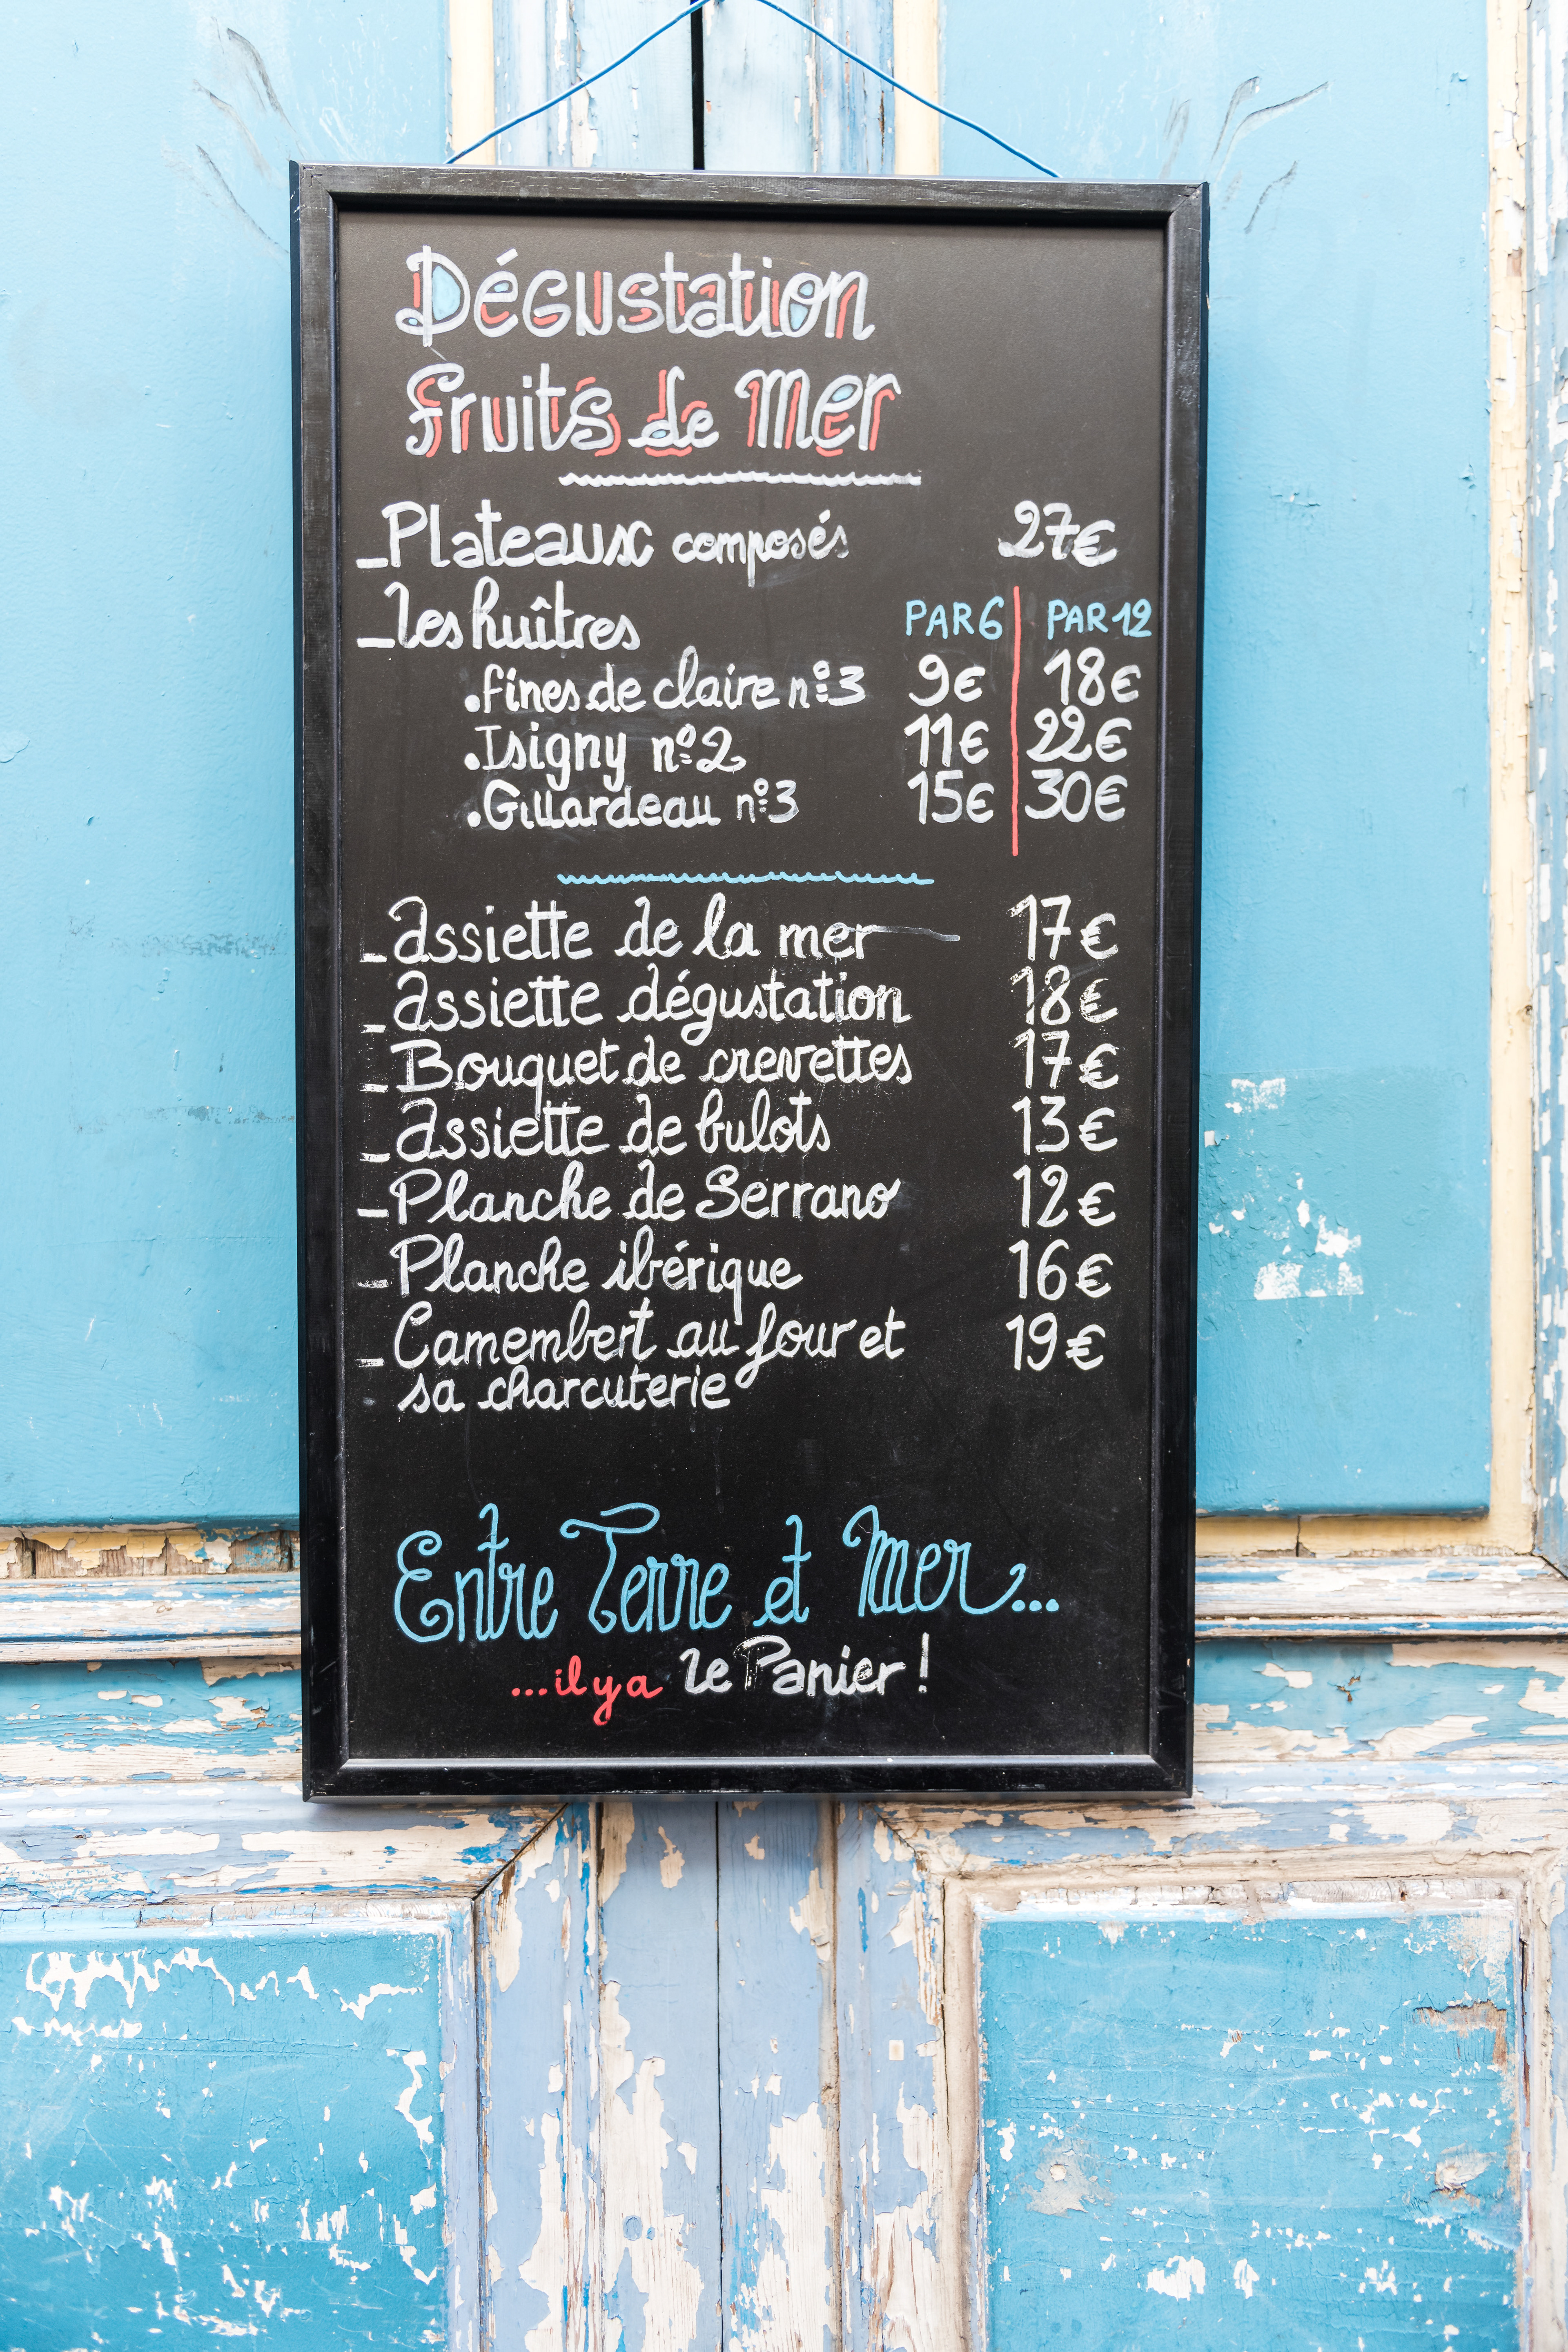 Dégustation
fruits de Mer
_Plateaux composés 27€
_les huîtres PAR 6 | PAR 12
.fines de claire n°3 9€ | 18€
.Isigny n°2 11€ | 22€
.Gillardeau n°3 15€ | 30€
_assiette de la mer 17€
_assiette dégustation 18€
_Bouquet de crevettes 17€
_assiette de bulots 13€
_Planche de Serrano 12€
_Planche ibérique 16€
_Camembert au four et 19€
sa charcuterie
Entre Terre et Mer...
...il y a le Panier !